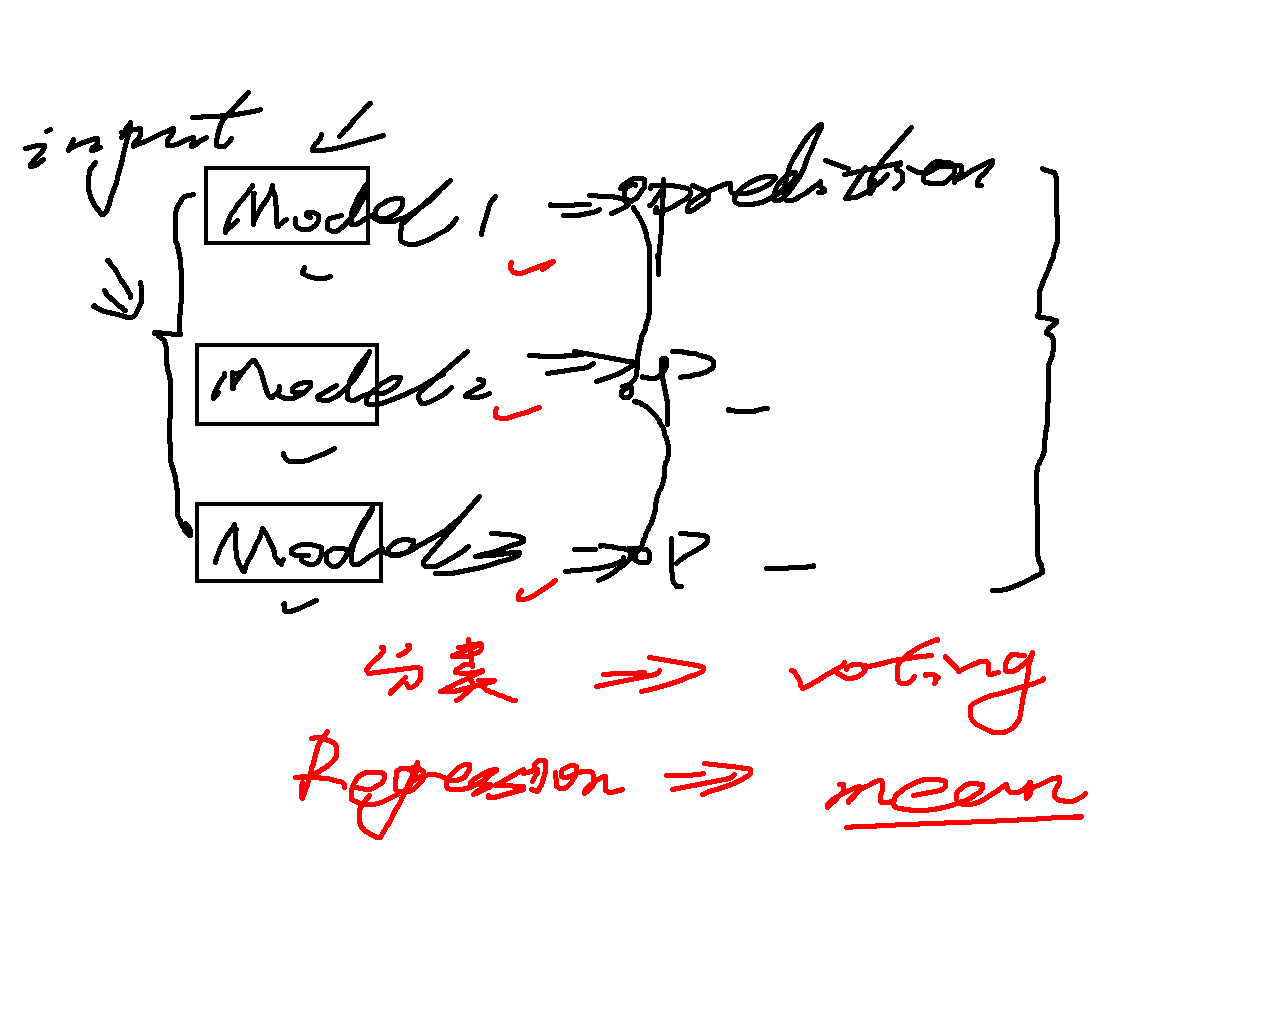 input
Model 1 ⇒ prediction
Model 2 ⇒ P
Model 3 ⇒ P
分类 ⇒ voting
Regression ⇒ mean